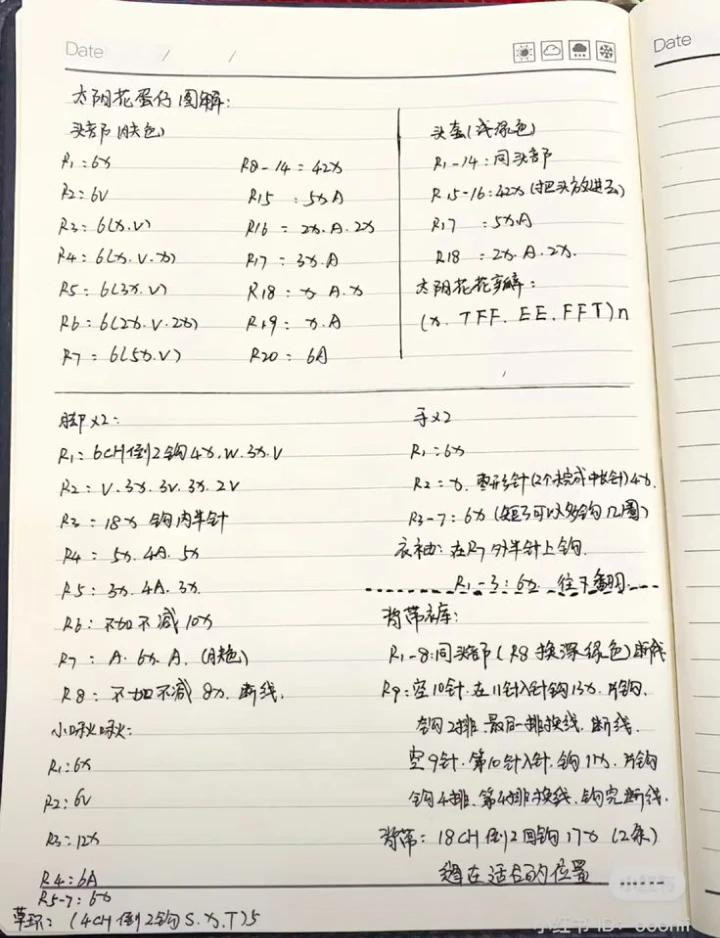 Date / /
Date
太阳花蛋仔图解:
头部(肤色)
R1:6x
R2:6V
R3:6(x.V)
R4:6(x.V.x)
R5:6(3x.V)
R6:6(2x.V.2x)
R7:6(5x.V)
R8-14=42x
R15:5x.A
R16=2x.A.2x
R17=3x.A
R18:x.A.x
R19=x.A
R20=6A
头套(浅绿色)
R1-14:同头部
R15-16:42x(把头放进去)
R17:5x.A
R18=2x.A.2x.
太阳花花瓣:
(x.TFF.EE.FFT)n
脚x2:
R1:6CH倒2钩4x.W.3x.V
R2=V.3x.3V.3x.2V
R3=18x 钩内半针
R4=5x.4A.5x
R5:3x.4A.3x.
R6:不加不减10x
R7:A.6x.A.(肤色)
R8:不加不减8x.断线.
小啾啾:
R1:6x
R2:6V
R3=12x
R4:6A
R5-7:6x
草环:(4CH倒2钩S.x.T)5
手x2
R1=6x
R2=x.枣形针(2个未完成中长针)4x.
R3-7:6x(短了可以多钩几圈)
衣袖:在R7外半针上钩.
R1-3:6x.往下翻.
背带衣库:
R1-8:同头部(R8换深绿色)断线
R9:空10针.在11针入针钩13x.片钩.
钩2排.最后一排换线.断线.
空9针.第10针入针.钩11x.片钩
钩4排.第4排换线.钩完断线.
背带:18CH倒2回钩17x(2条)
缝在适合的位置
小红书
小红书ID: